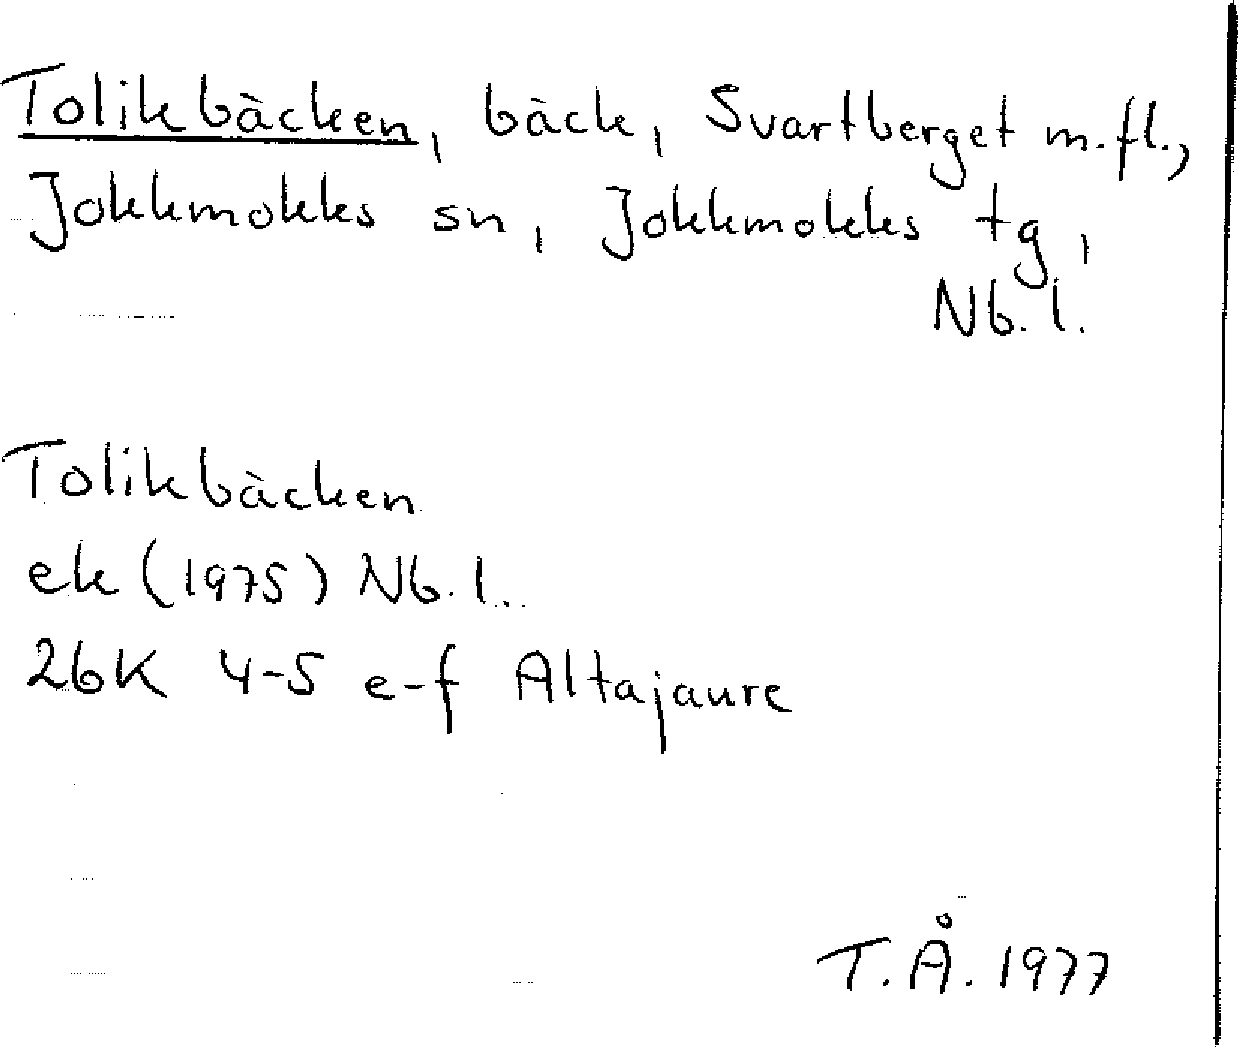 Tolikbäcken, bäck, Svartberget m.fl.,
Jokkmokks sn, Jokkmokks tg,
Nb. l.
Tolikbäcken
ek (1975) Nb. l.
26K 4-5 e-f Altajaure
T.Å. 1977